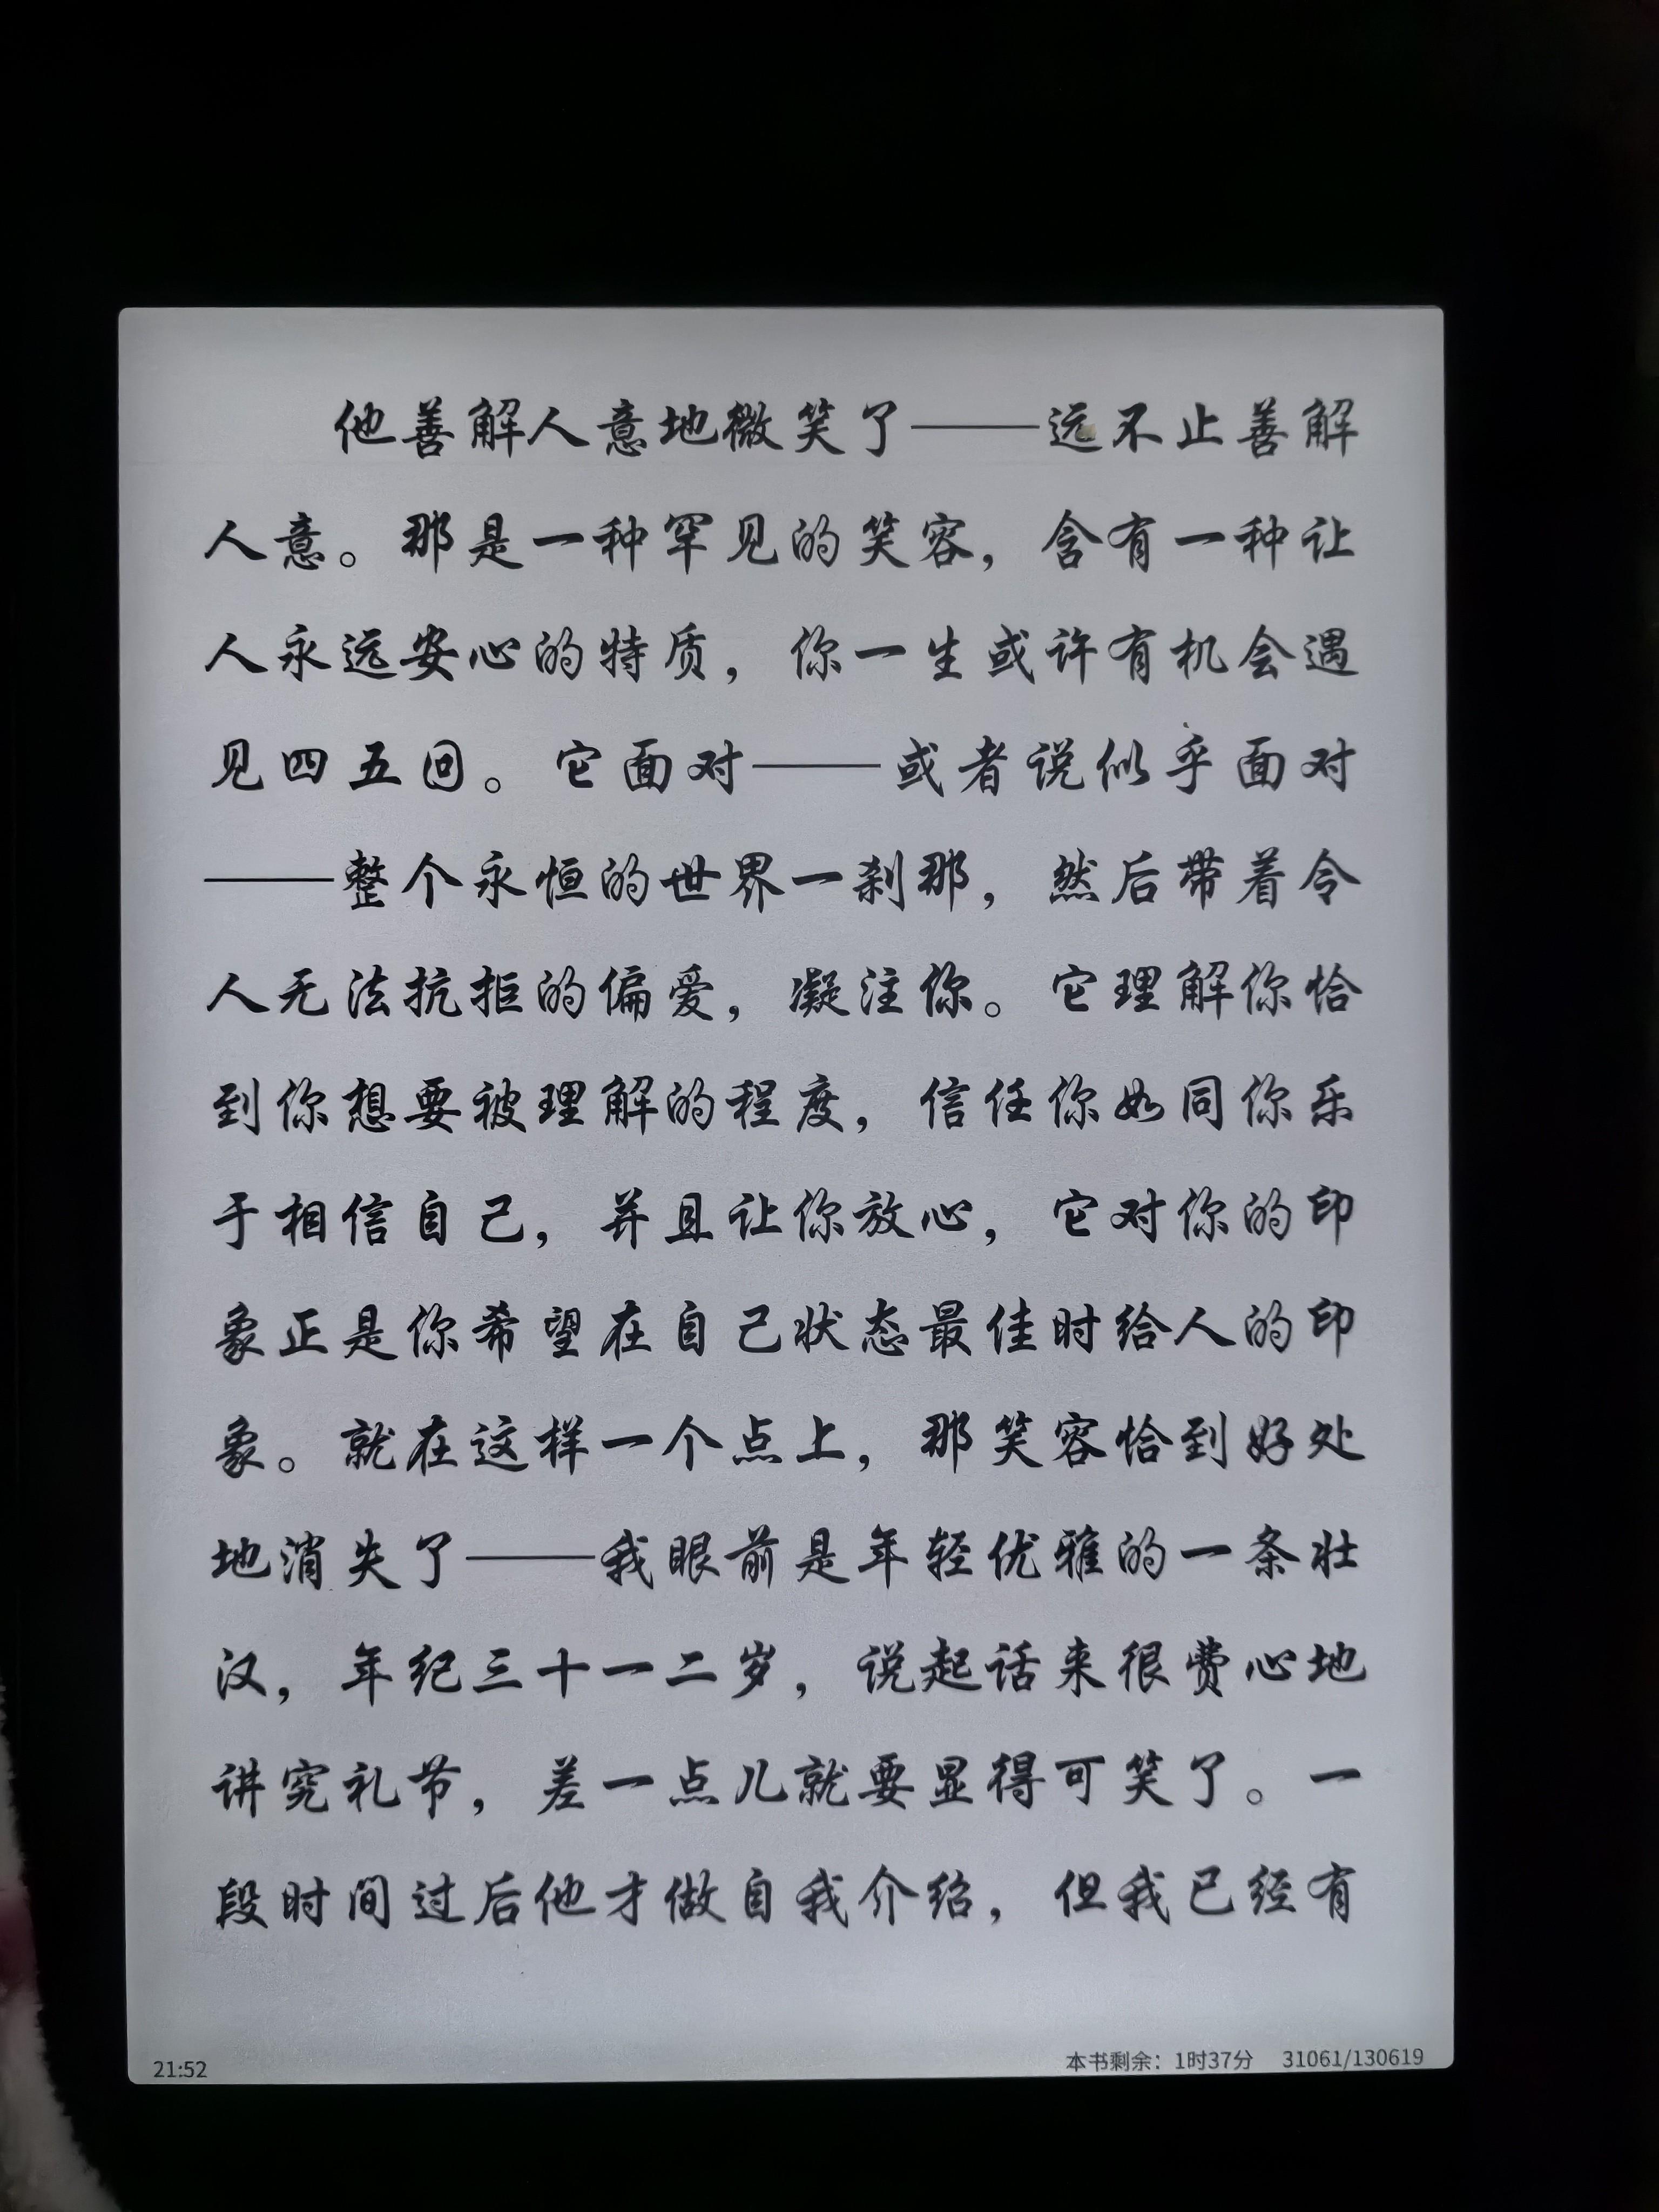 他善解人意地微笑了——远不止善解
人意。那是一种罕见的笑容，含有一种让
人永远安心的特质，你一生或许有机会遇
见四五回。它面对——或者说似乎面对
——整个永恒的世界一刹那，然后带着令
人无法抗拒的偏爱，凝注你。它理解你恰
到你想要被理解的程度，信任你如同你乐
于相信自己，并且让你放心，它对你的印
象正是你希望在自己状态最佳时给人的印
象。就在这样一个点上，那笑容恰到好处
地消失了——我眼前是年轻优雅的一条壮
汉，年纪三十一二岁，说起话来很费心地
讲究礼节，差一点儿就要显得可笑了。一
段时间过后他才做自我介绍，但我已经有
21:52 本书剩余：1时37分 31061/130619